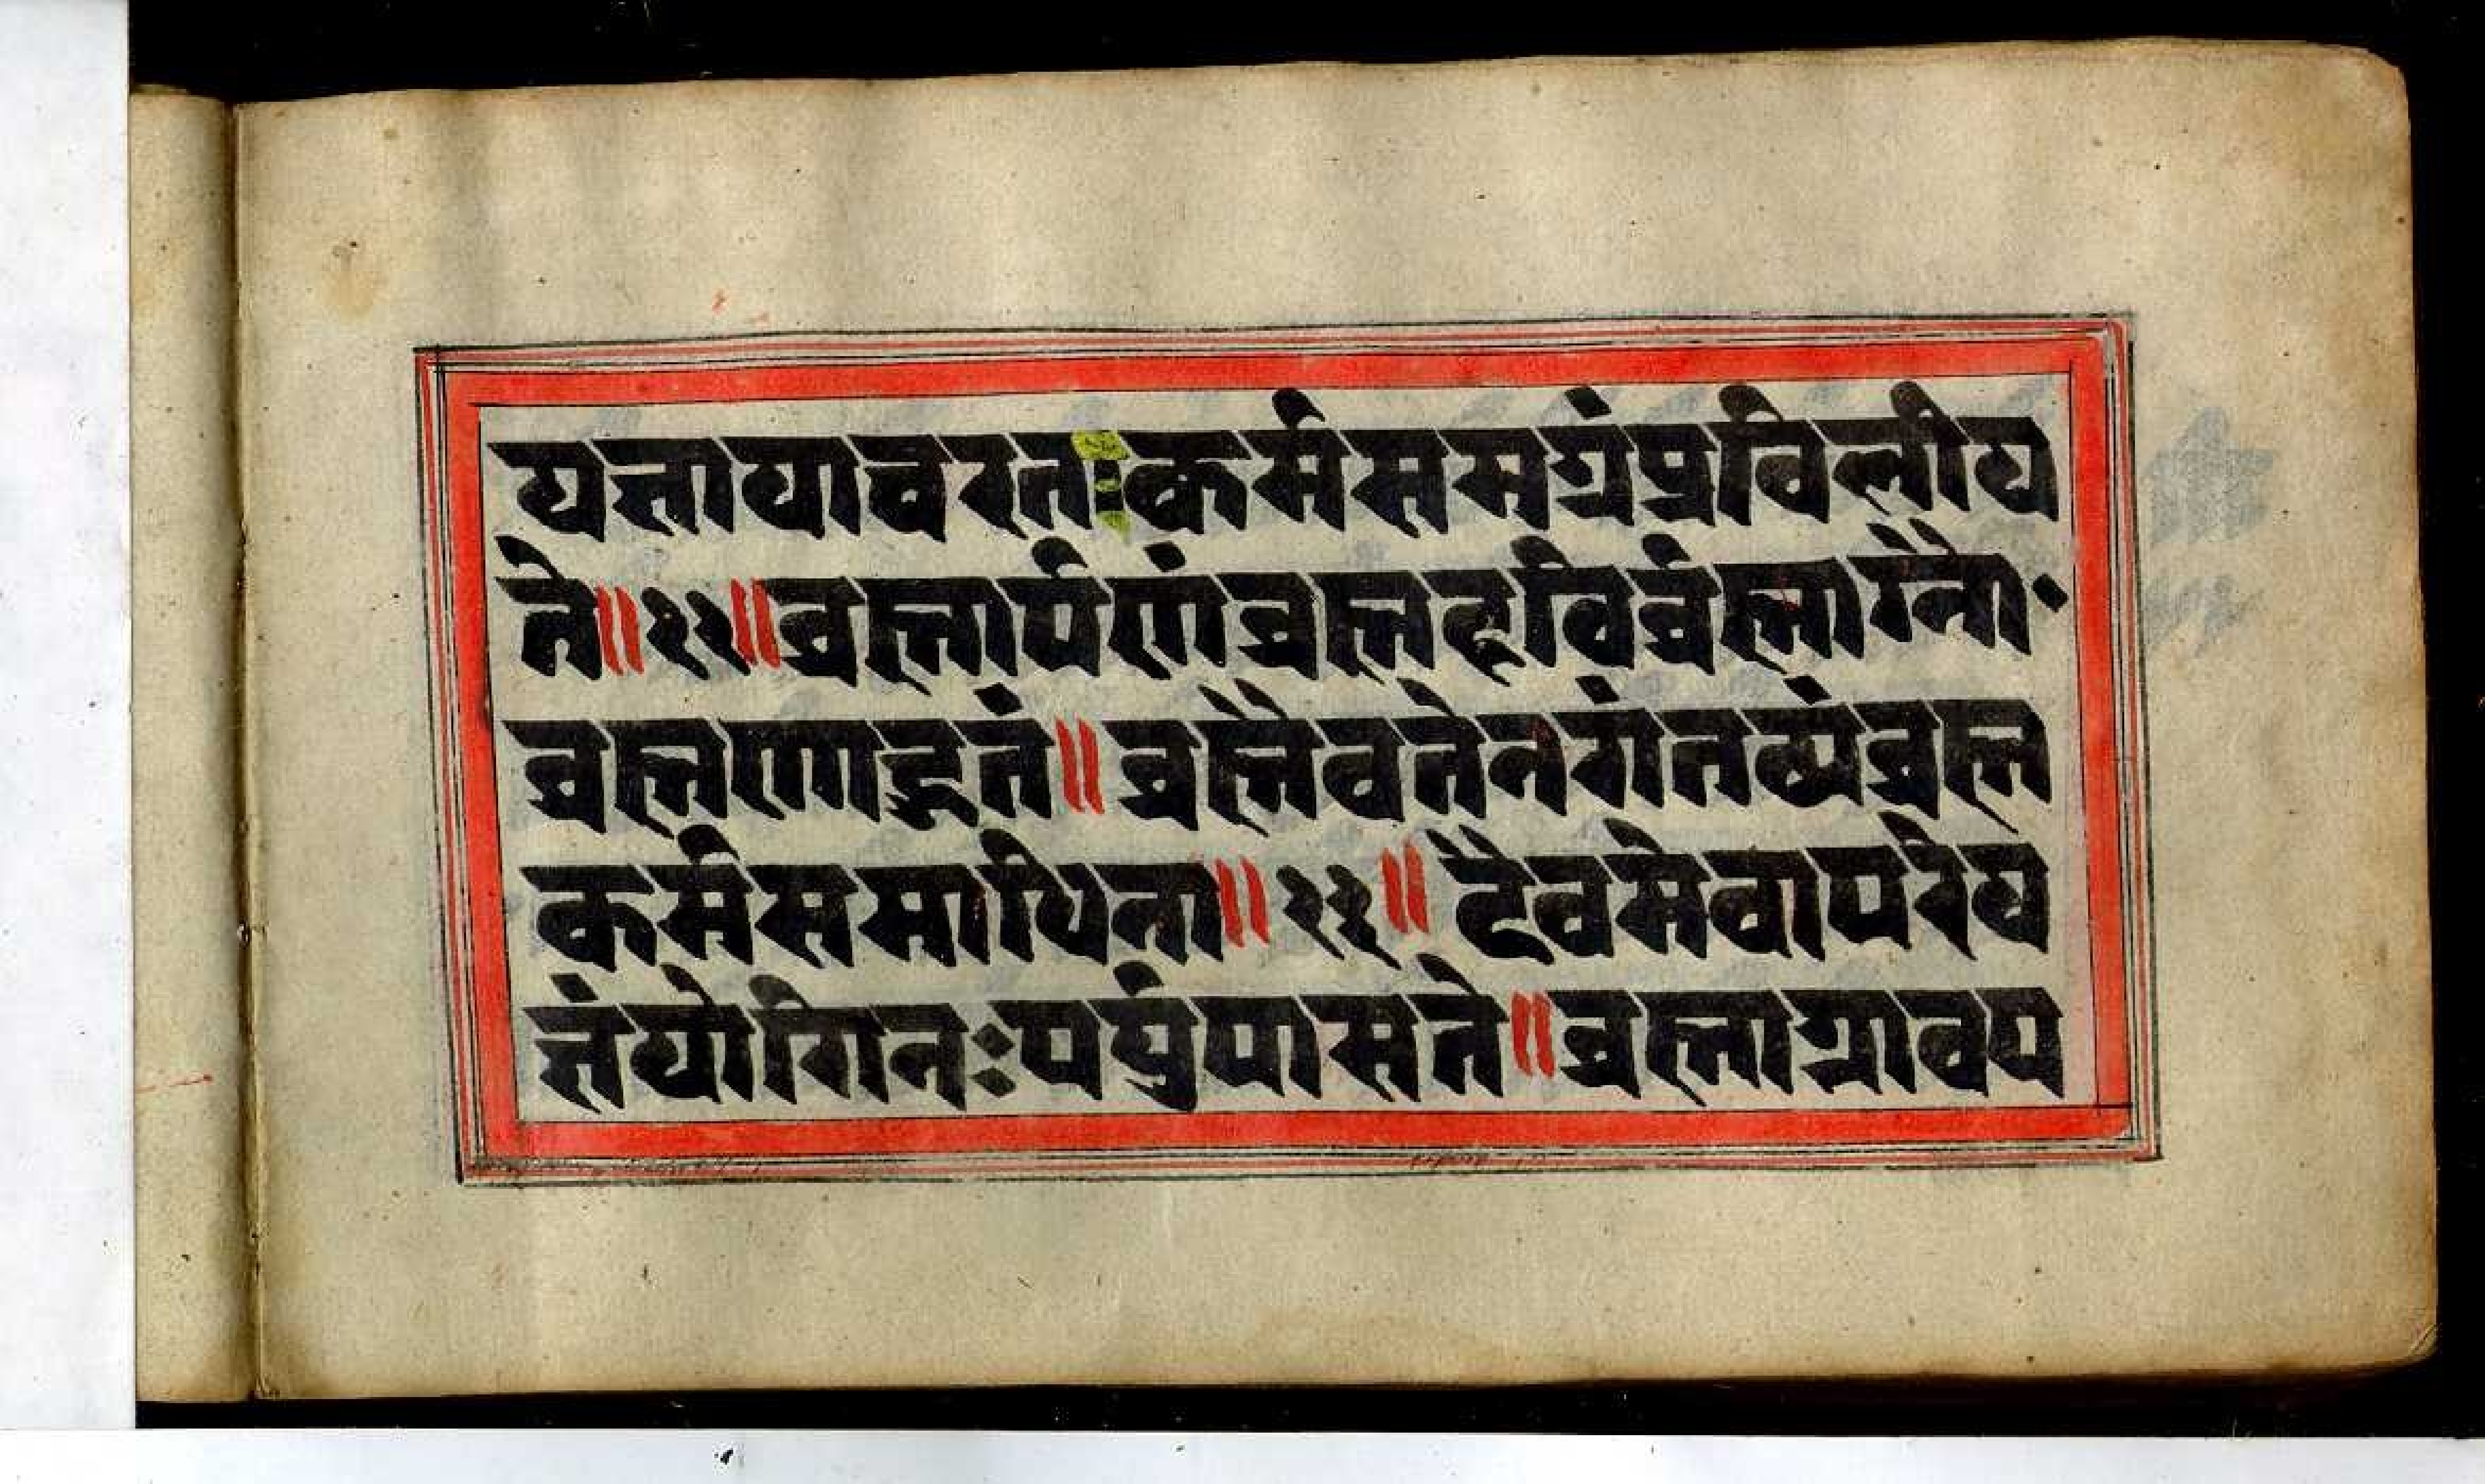 यज्ञायाचरतःकर्मसमग्रंप्रविलीय
ते॥२२॥ब्रह्मार्पणंब्रह्महविर्ब्रह्माग्नौ
ब्रह्मणाहुतं॥ब्रह्मैवतेनगंतव्यंब्रह्म
कर्मसमाधिना॥२३॥दैवमेवापरेय
ज्ञंयोगिनःपर्युपासते॥ब्रह्माग्नावप